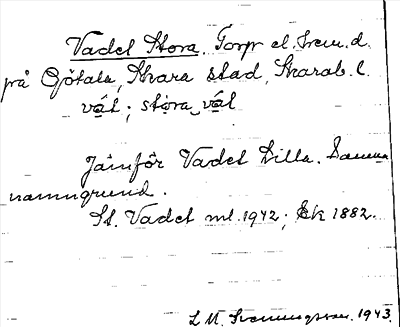 Vadet Stora. Torp el. Irem. d.
på Götala, Skara stad, Skarab. l.
våt; stora våt
Jämför Vadet Lilla. Samma
namngrund.
St. Vadet ml. 1942; Ek 1882.
L M. 1943.